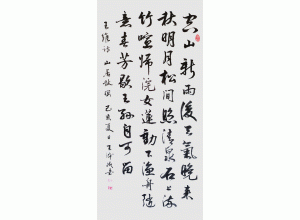 空山新雨後天氣晚來
秋明月松間照清泉石上流
竹喧歸浣女蓮動下漁舟隨
意春芳歇王孫自可留
王維詩 山居秋暝 己亥夏日王